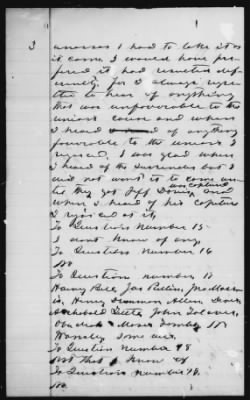 3 uneasy I had to take it as
it came I would have pre-
fered it had resulted dif-
ferently, for I always regre
tted to hear of anything
that was unfavorable to the
union cause and when
I heard of anything
favorable to the union I
rejoiced, I was glad when
I heard of the Surrender but I
did not want it to come un-
til they got Jeff Davis, and
was captured
when I heard of his capture
I rejoiced at it,
To Question Number 15
I don't know of any
To Question Number 16
No
To Question Number 17
Harvey
Henry Allen
Archibald John
Moses
To Question Number 18
Not that I know of
To Question Number 19.
No